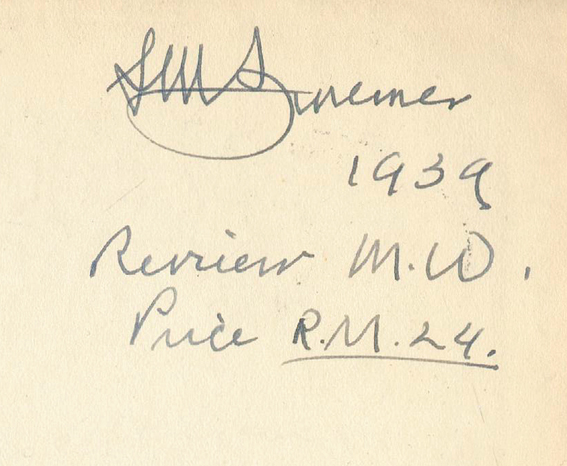 SM Zwemer
1939
Review M.W.
Price R.M.24.